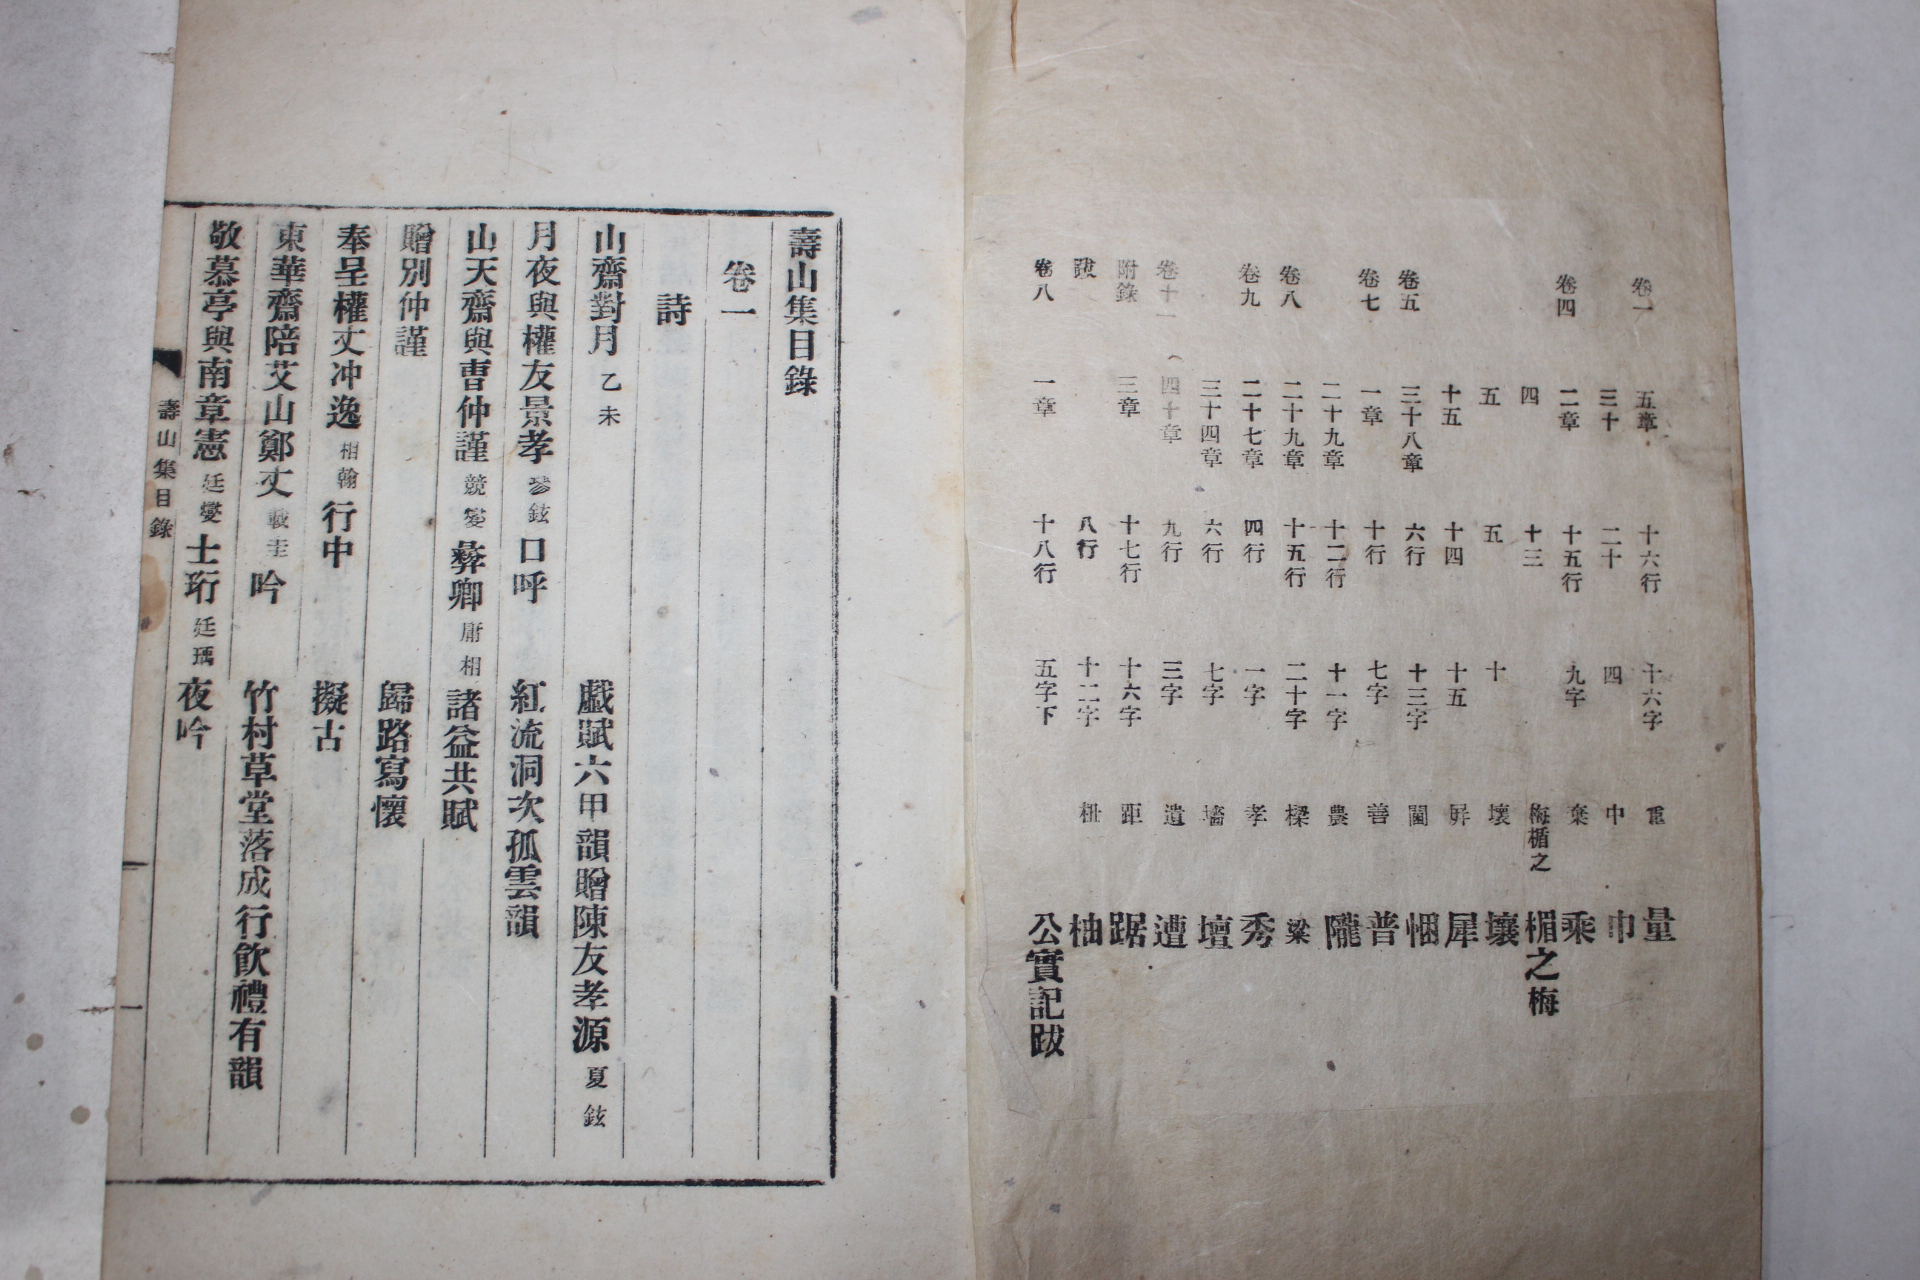 卷一 五章 十六行 十六字 重 量
三十 二十 四 中 巾
卷四 二章 十五行 九字 棄 乘
四 十三 梅楣之 楣之梅
五 五 十 壞 壤
十五 十四 十五 屛 犀
卷五 三十八章 六行 十三字 悃
卷七 一章 十行 七字 善 普
二十九章 十二行 十一字 農 隴
卷八 二十九章 十五行 二十字 樑 粱
卷九 二十七章 四行 一字 孝 秀
三十四章 六行 七字 墻 壇
卷十一 四十章 九行 三字 遺 遭
附錄 三章 十七行 十六字 距 踞
跋 八行 十二字 柚
卷八 一章 十八行 五字下 公實記跋
壽山集目錄
卷一
詩
山齋對月 乙未 戱賦六甲韻贈陳友孝源 夏鉉
月夜與權友景孝 鉉 口呼 紅流洞次孤雲韻
山天齋與曺仲謹 競燮 彝卿 庸相 諸益共賦
贈別仲謹 歸路寫懷
奉呈權丈冲逸 相翰 行中 擬古
東華齋陪艾山鄭丈 載圭 吟 竹村草堂落成行飮禮有韻
敬慕亭與南章憲 廷燮 士珩 廷瑀 夜吟
壽山集目錄 一